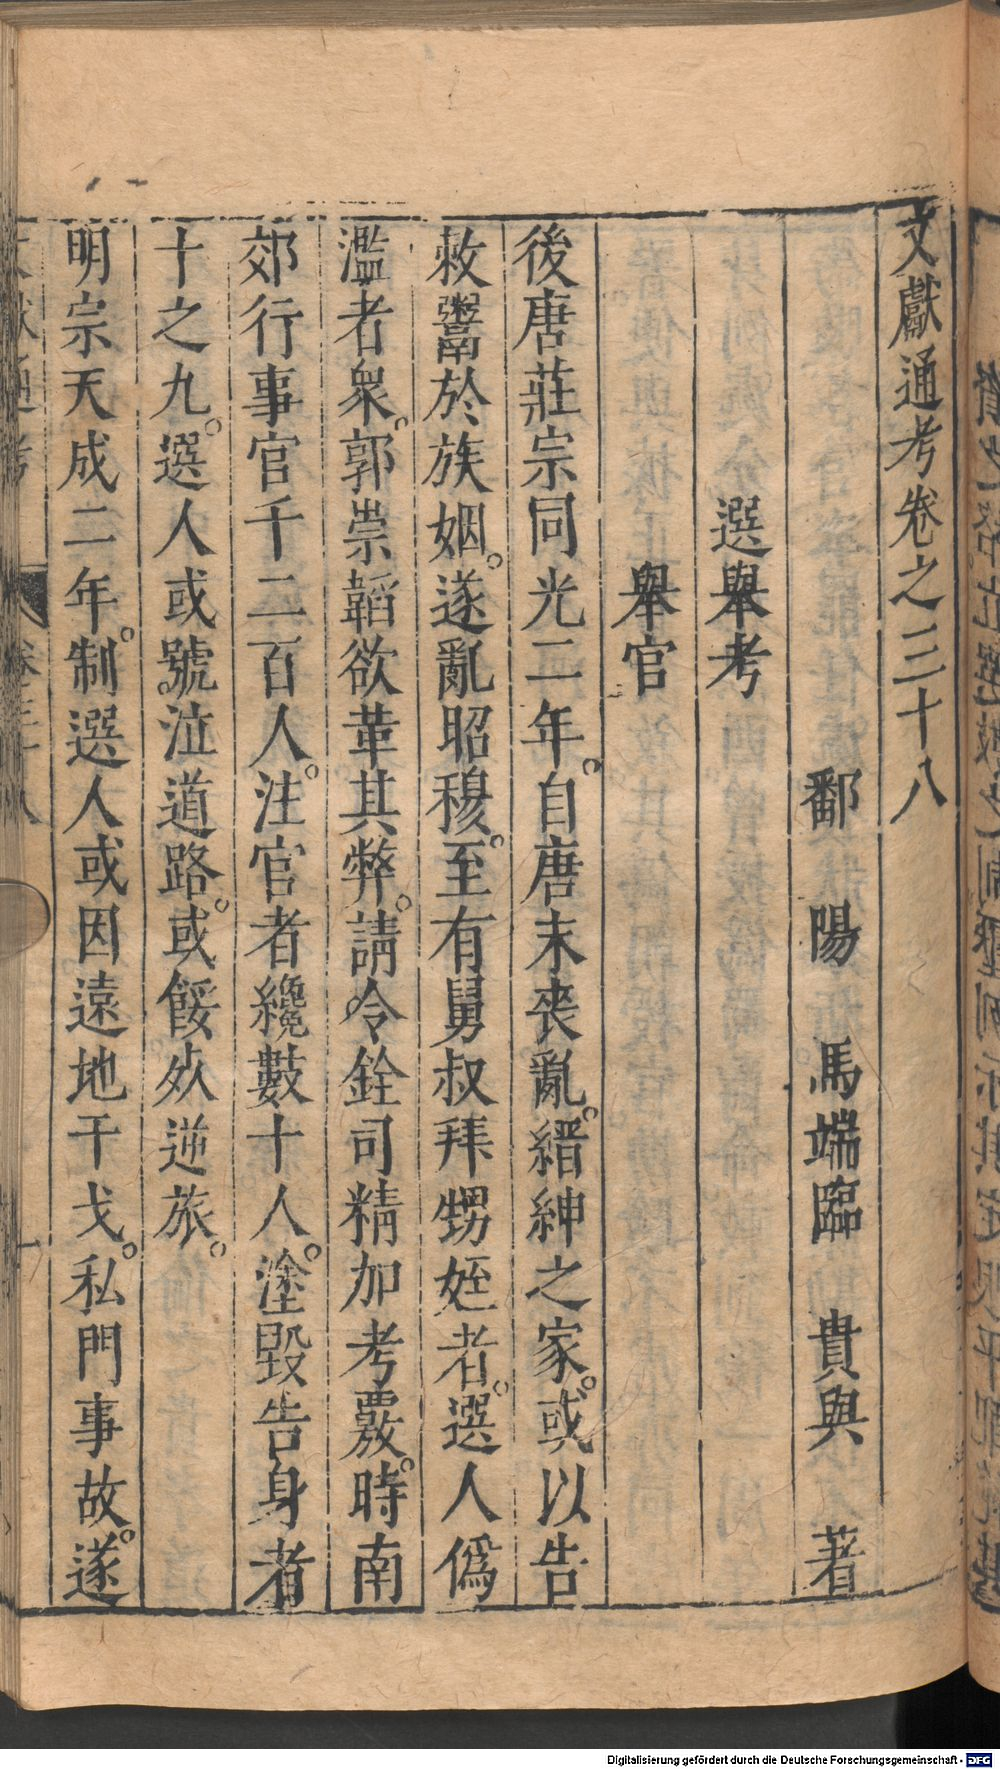 文獻通考卷之三十八
鄱陽 馬端臨 貴與 著
選舉考
舉官
後唐莊宗同光二年。自唐末喪亂。縉紳之家。或以告
敕鬻於族姻。遂亂昭穆。至有舅叔拜甥姪者。選人僞
濫者衆。郭崇韜欲革其弊。請令銓司精加考覈。時南
郊行事官千二百人。注官者纔數十人。塗毀告身者
十之九。選人或號泣道路。或餒死逆旅。
明宗天成二年。制選人或因遠地干戈。私門事故。遂
Digitalisierung gefördert durch die Deutsche Forschungsgemeinschaft - DFG